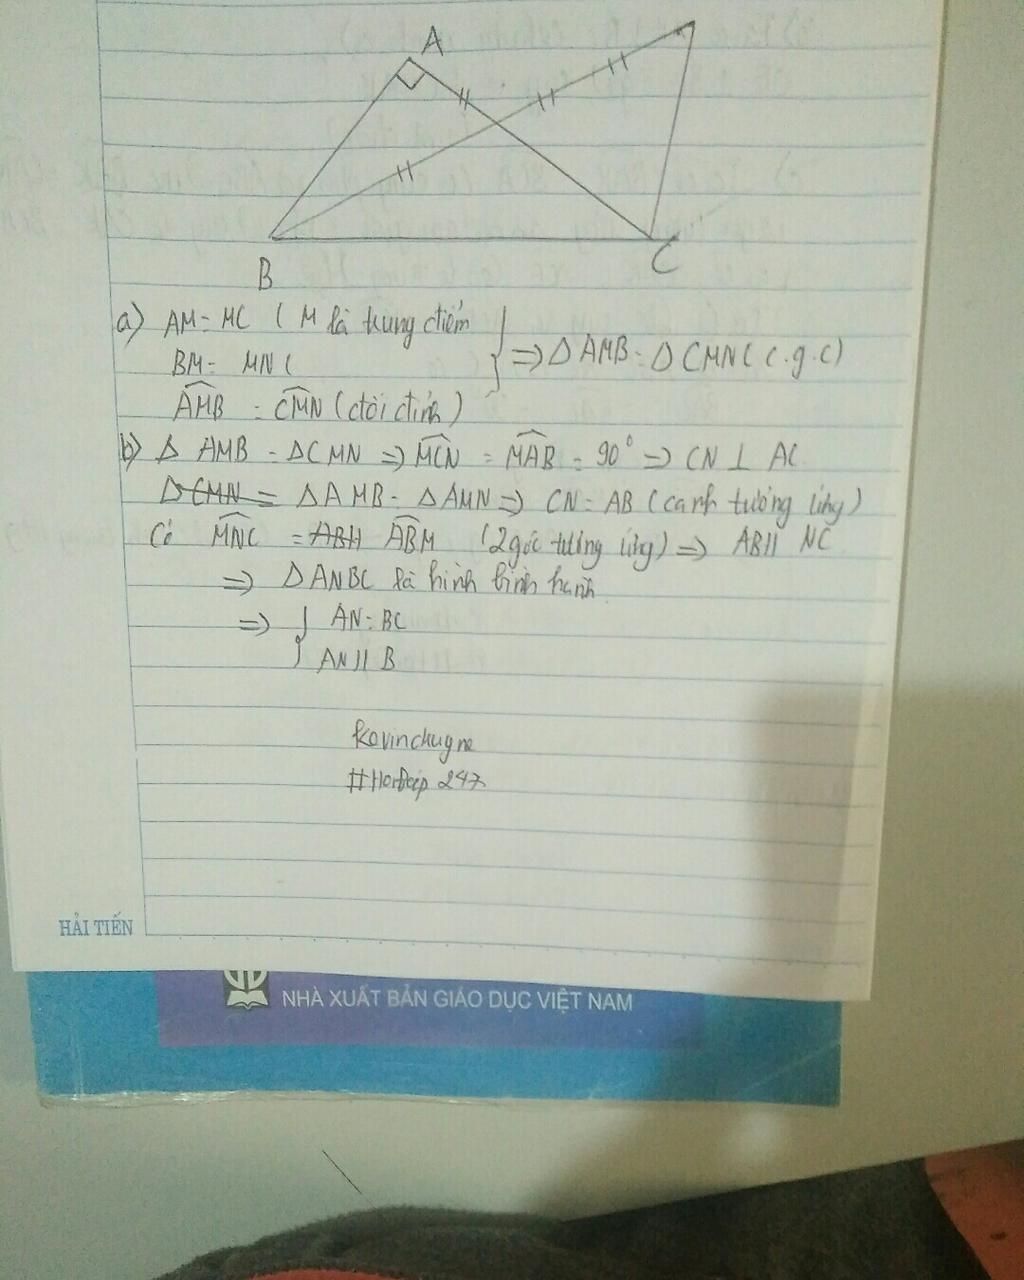 A
B
C
a) AM = MC ( M là trung điểm
BM = MN (
AMB = CMN (đối đỉnh)
} => Δ AMB = Δ CMN ( c.g.c)
b) Δ AMB = ΔCMN => MCN = MAB = 90° => CN ⊥ AC
ΔCMN = ΔAMB = ΔAMN => CN = AB (cạnh tương ứng)
Có MNC = ABH ABM (2 góc tương ứng) => AB // NC
=> Δ ANBC là hình bình hành
=> { AN = BC
AN // B
Kevinchugne
247
HẢI TIẾN
NHÀ XUẤT BẢN GIÁO DỤC VIỆT NAM